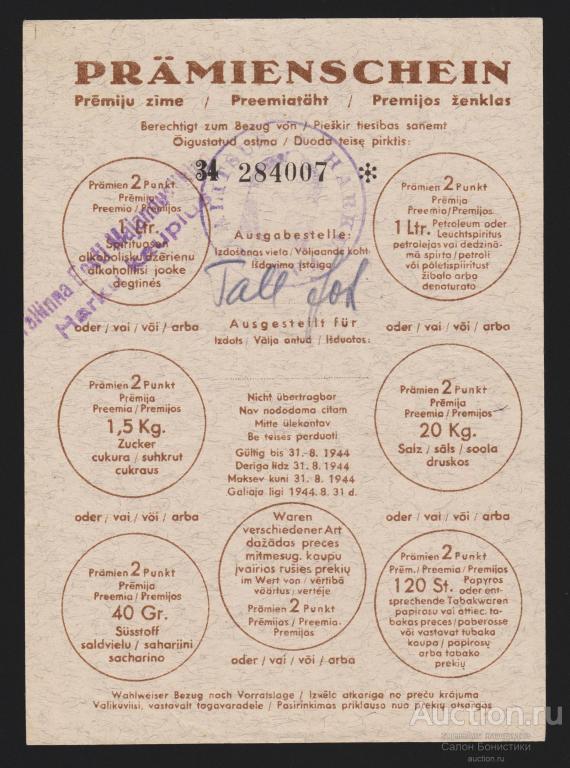 PRÄMIENSCHEIN
Prēmiju zīme / Preemiatäht / Premijos ženklas
Berechtigt zum Bezug von / Piešķir tiesības saņemt
Õigustatud ostma / Duoda teisę pirktis:
34 284007 *
Prämien 2 Punkt
Prēmija
Preemia/Premijos
Ltr.
Spirituosen
alkoholisku dzērienu
alkohoolisi jooke
degtinės
HARKU
Tallinna Eesti Majandusühisus
Harku kauplus
Prämien 2 Punkt
Prēmija
Preemia/Premijos
1 Ltr. Petroleum oder
Leuchtspiritus
petrolejas vai dedzinā-
mā spirta / petrooli
või põletispiiritust
žibalo arba
denaturato
Ausgabestelle:
Izdošanas vieta / Väljaande koht
Išdavimo įstaiga
Tall
oder / vai / või / arba
Ausgestellt für
Izdots / Välja antud / Išduotas:
oder / vai / või / arba
Prämien 2 Punkt
Prēmija
Preemia / Premijos
1,5 Kg.
Zucker
cukura / suhkrut
cukraus
Nicht übertragbar
Nav nododama citam
Mitte ülekantav
Be teisės perduoti
Gültig bis 31.-8. 1944
Derīga līdz 31. 8. 1944
Maksev kuni 31. 8. 1944
Galioja ligi 1944. 8. 31 d.
Prämien 2 Punkt
Prēmija
Preemia / Premijos
20 Kg.
Salz / sāls / soola
druskos
oder / vai / või / arba
oder / vai / või / arba
Prämien 2 Punkt
Prēmija
Preemia / Premijos
40 Gr.
Süsstoff
saldvielu / sahariini
sacharino
Waren
verschiedener Art
dažādas preces
mitmesug. kaupu
įvairios rušies prekių
im Wert von / vērtībā
väärtus / vertėje
Prämien 2 Punkt
Prēmijas / Preemia-
Premijos
Prämien 2 Punkt
Prēm. / Preemia / Premijos
120 St. Papyros
oder ent-
sprechende Tabakwaren
papirosu vai attiec. ta-
bakas preces / paberosse
või vastavat tubaka
kaupa / papirosų
arba tabako
prekių
oder / vai / või / arba
Wahlweiser Bezug nach Vorratslage / Izvēle atkarīga no preču krājuma
Valikuviisi, vastavalt tagavaradele / Pasirinkimas priklauso nuo prekių atsargos
Auction.ru
Салон Бонистики
auction.ru